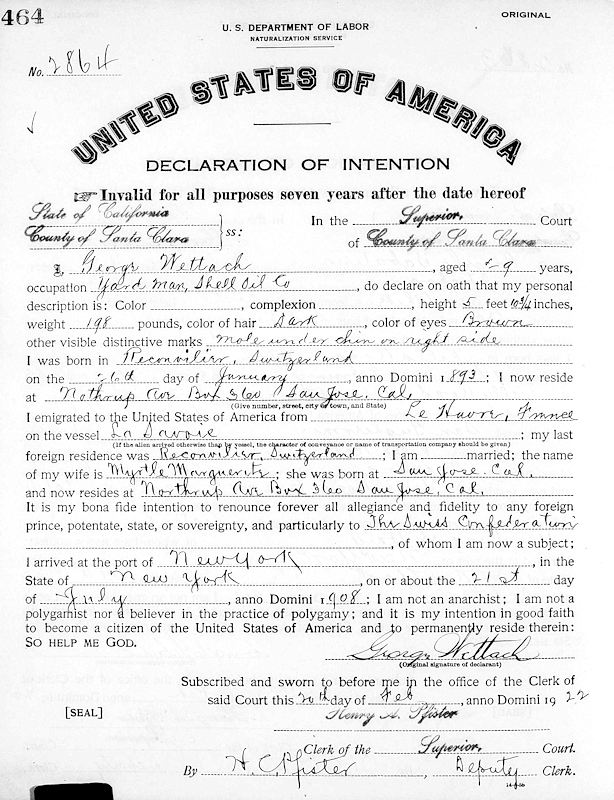 464
ORIGINAL
U. S. DEPARTMENT OF LABOR
NATURALIZATION SERVICE
No. 2864
UNITED STATES OF AMERICA
DECLARATION OF INTENTION
☞ Invalid for all purposes seven years after the date hereof
State of California
County of Santa Clara
ss:
In the Superior, Court
of County of Santa Clara
I, George Wettach, aged 29 years,
occupation Yard Man, Shell Oil Co, do declare on oath that my personal
description is: Color, complexion, height 5 feet 10 3/4 inches,
weight 198 pounds, color of hair Dark, color of eyes Brown
other visible distinctive marks mole under chin on right side
I was born in Reconvilier, Switzerland
on the 26th day of January, anno Domini 1893; I now reside
at Nothrup Ave Box 360 San Jose, Cal.
(Give number, street, city or town, and State)
I emigrated to the United States of America from Le Havre, France
on the vessel La Savoie; my last
(If the alien arrived otherwise than by vessel, the character of conveyance or name of transportation company should be given)
foreign residence was Reconvilier, Switzerland; I am married; the name
of my wife is Myrtle Marguerite; she was born at San Jose. Cal.
and now resides at Northrup Ave Box 360 San Jose, Cal.
It is my bona fide intention to renounce forever all allegiance and fidelity to any foreign
prince, potentate, state, or sovereignty, and particularly to The Swiss Confederation
, of whom I am now a subject;
I arrived at the port of New York, in the
State of New York, on or about the 21st day
of July, anno Domini 1908; I am not an anarchist; I am not a
polygamist nor a believer in the practice of polygamy; and it is my intention in good faith
to become a citizen of the United States of America and to permanently reside therein:
SO HELP ME GOD.
George Wettach
(Original signature of declarant)
Subscribed and sworn to before me in the office of the Clerk of
said Court this 20th day of Feb, anno Domini 1922
[SEAL]
Henry A. Pfister
Clerk of the Superior, Court.
By H. C. Pfister, Deputy Clerk.